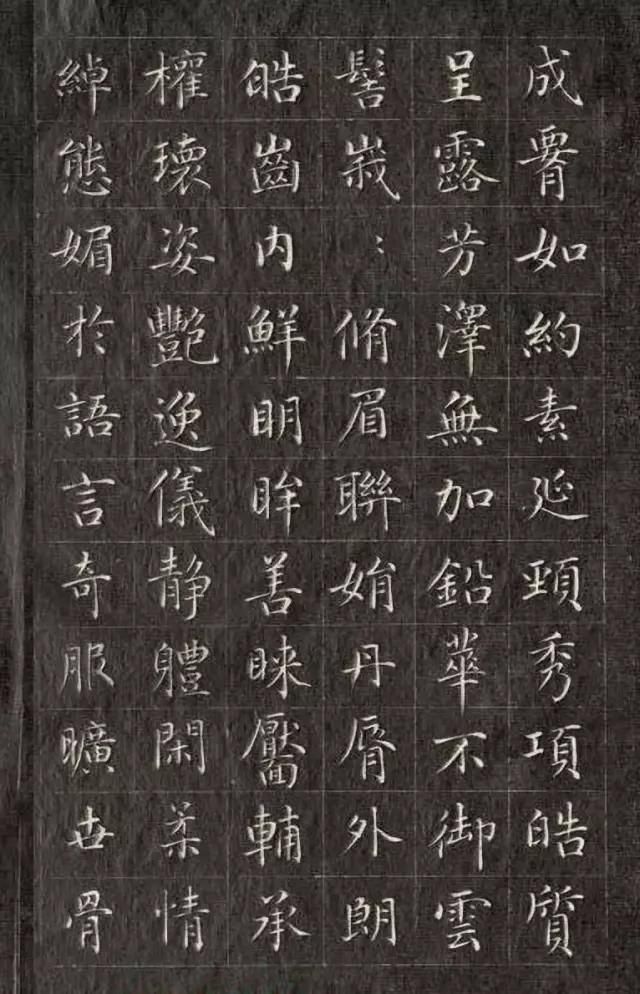 成腰如約素延頸秀項皓質
呈露芳澤無加鉛華不御雲
髻峩〻脩眉聯娟丹脣外朗
皓齒内鮮明眸善睞靨輔承
權瓌姿豔逸儀静軆閑柔情
綽態媚於語言奇服曠世骨